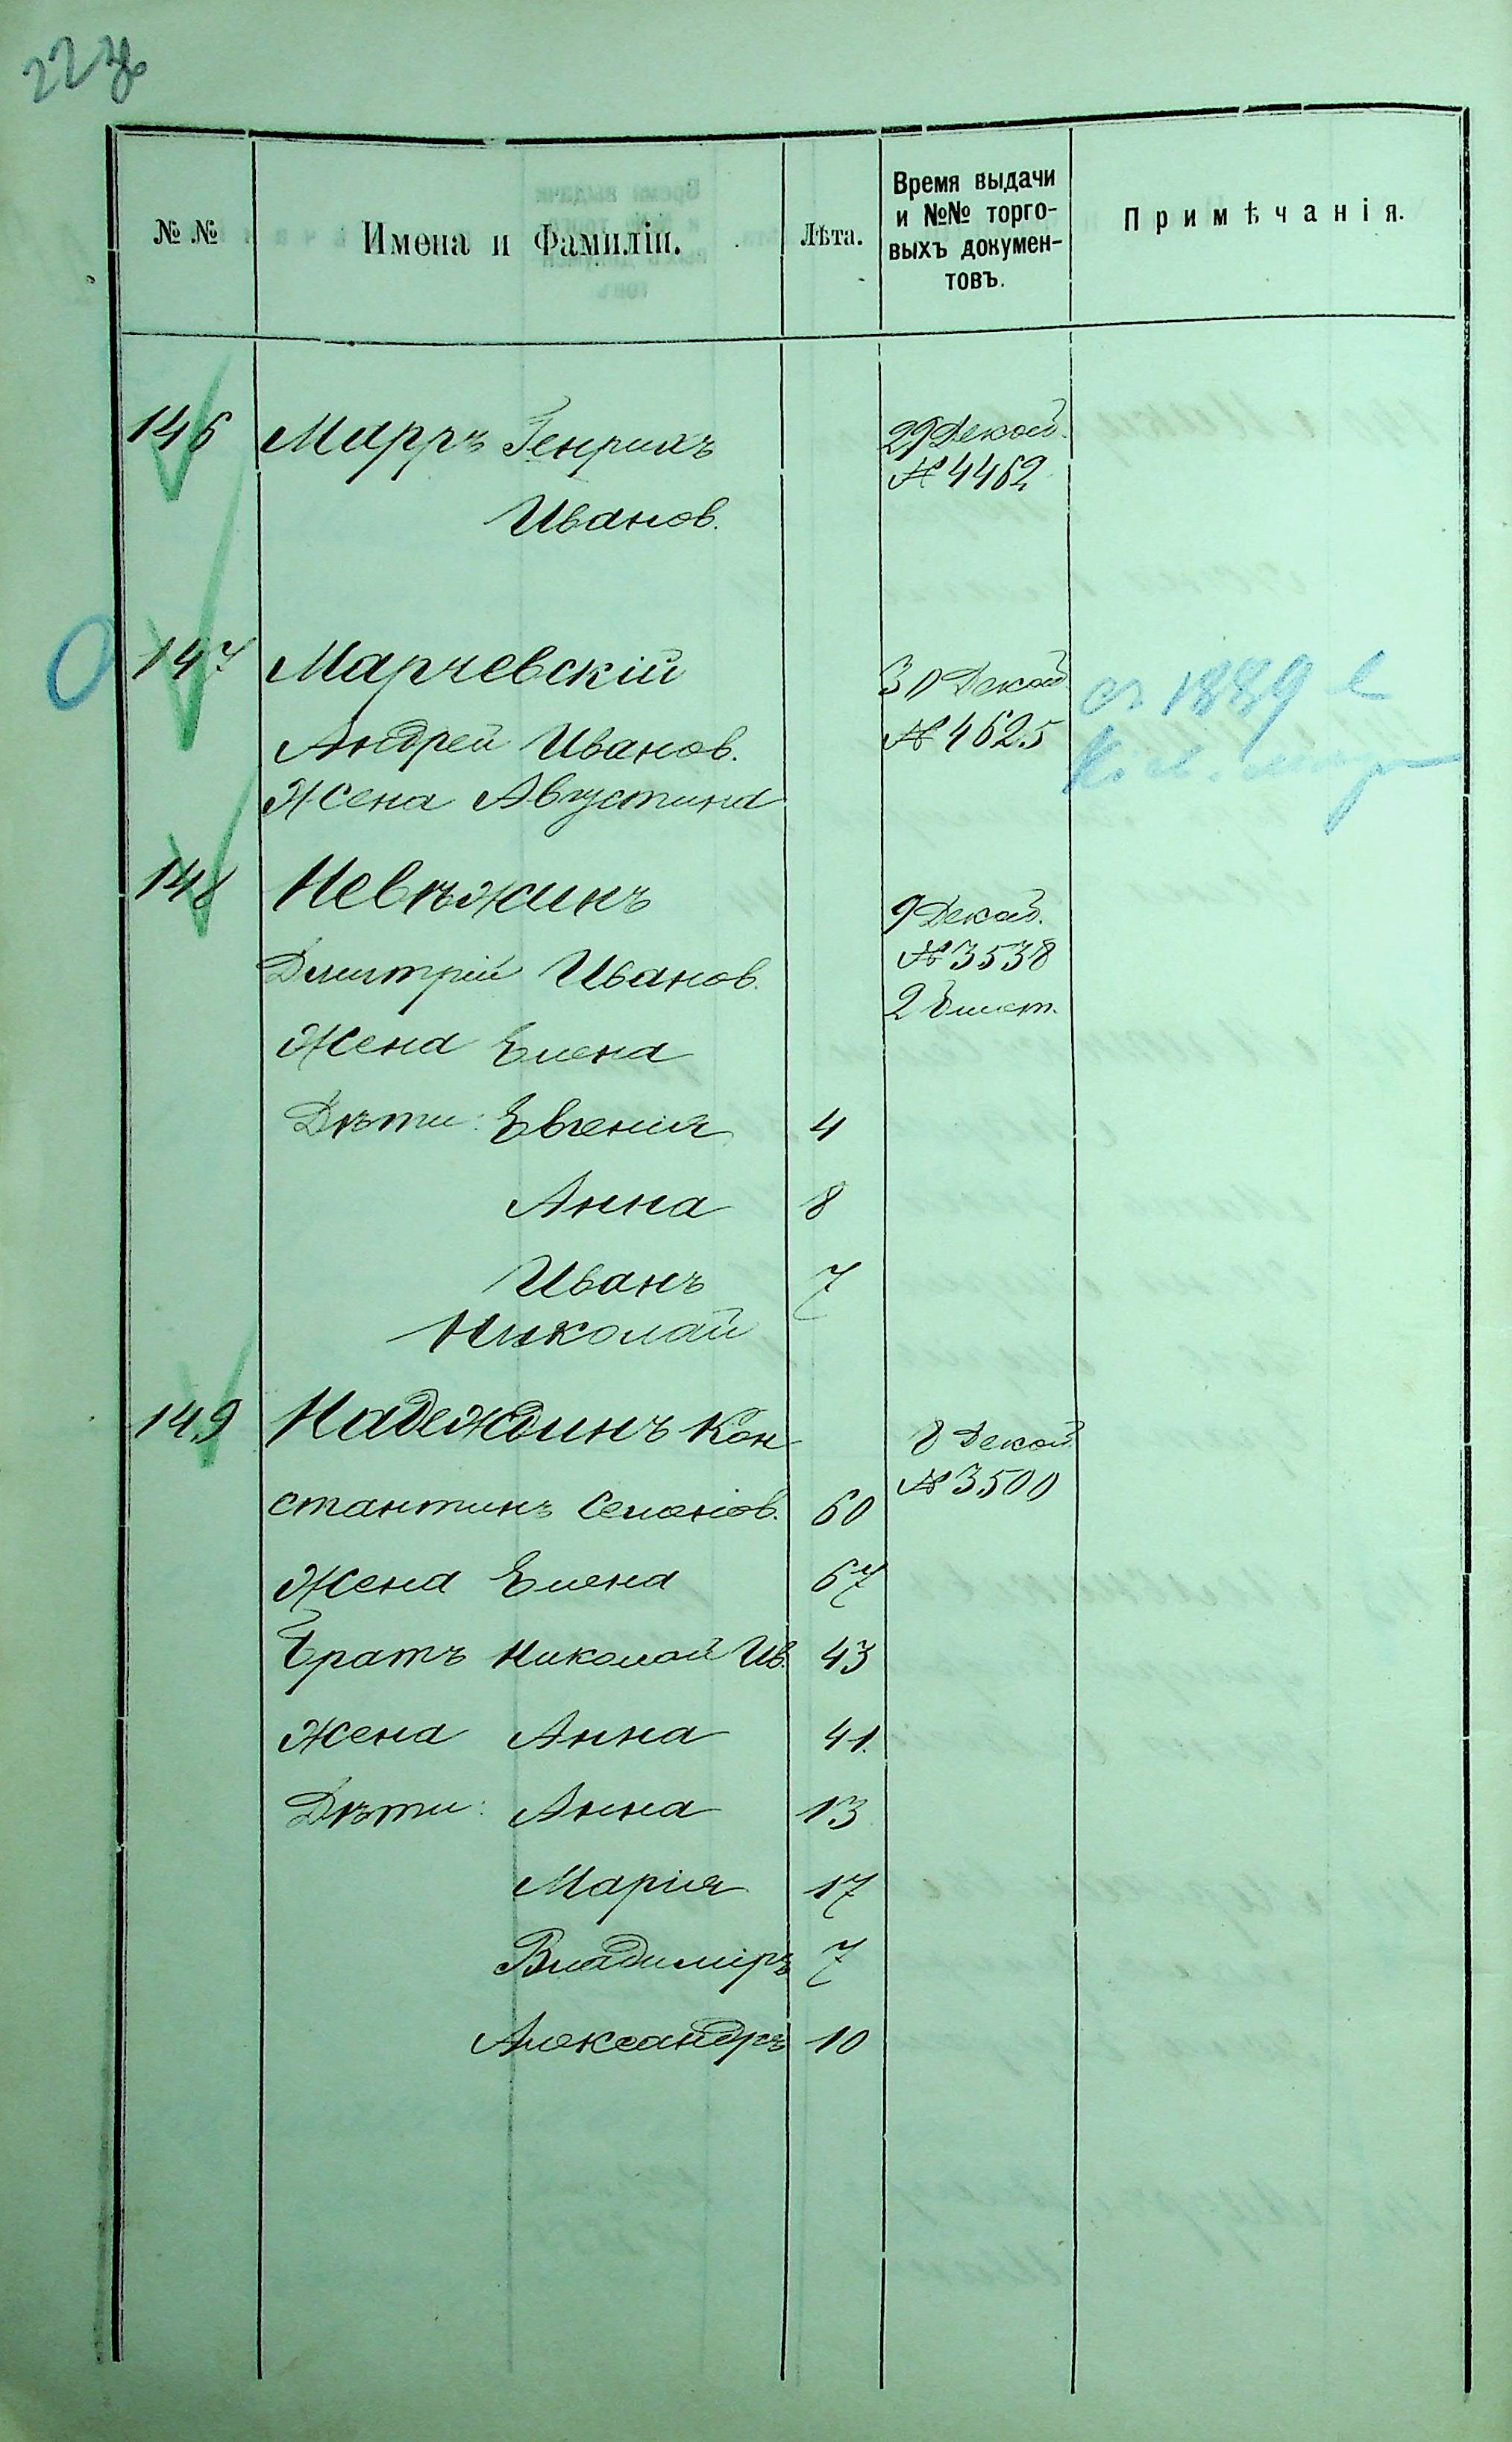 № №
Имена и Фамиліи.
Лѣта.
Время выдачи
и №№ торго-
выхъ докумен-
товъ.
Примѣчанія.
146 Марръ Генрихъ
Иванов.
29 Декаб.
№ 4462
147 Марчевскій
Андрей Иванов.
Жена Августина
30 Декаб.
№ 4625
съ 1889
148 Невѣжинъ
Дмитрій Иванов.
Жена Елена
Дѣти: Евгенія 4
Анна 8
Иванъ 7
Николай
9 Декаб.
№ 3538
2
149 Надеждинъ Кон
стантинъ Семенов. 60
8 Декаб.
№ 3500
Жена Елена 67
Братъ Николай Ив. 43
Жена Анна 41.
Дѣти: Анна 13
Марія 17
Владиміръ 7
Александръ 10